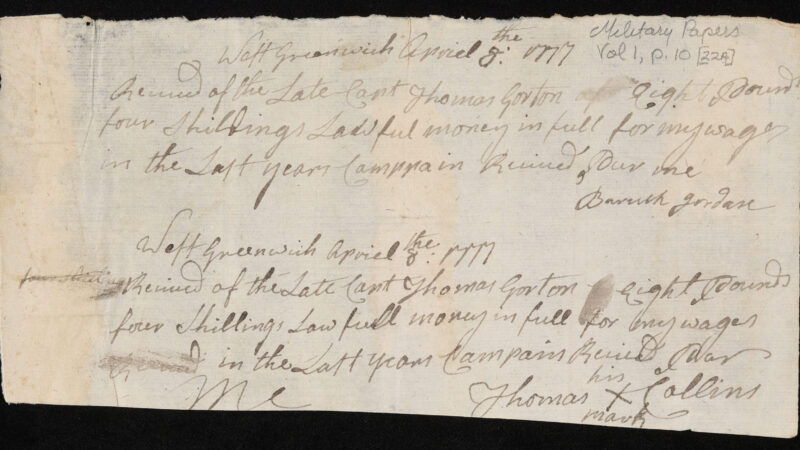 West Greenwich Apriel the 8: 1777
Military Papers
Vol 1, p. 10 [22A]
Reciued of the Late Capt Thomas Gorton Eight Pounds
four Shillings Lawful money in full for my wages
in the Last years Camppain Reciued Pur me
Baruch Jordan
West Greenwich Apriel the 8: 1777
four Shillings Reciued of the Late Capt Thomas Gorton Eight Pounds
four Shillings Law full money in full for my wages
in the Last years Campain Reciued Par
Me
his
Thomas X Collins
mark